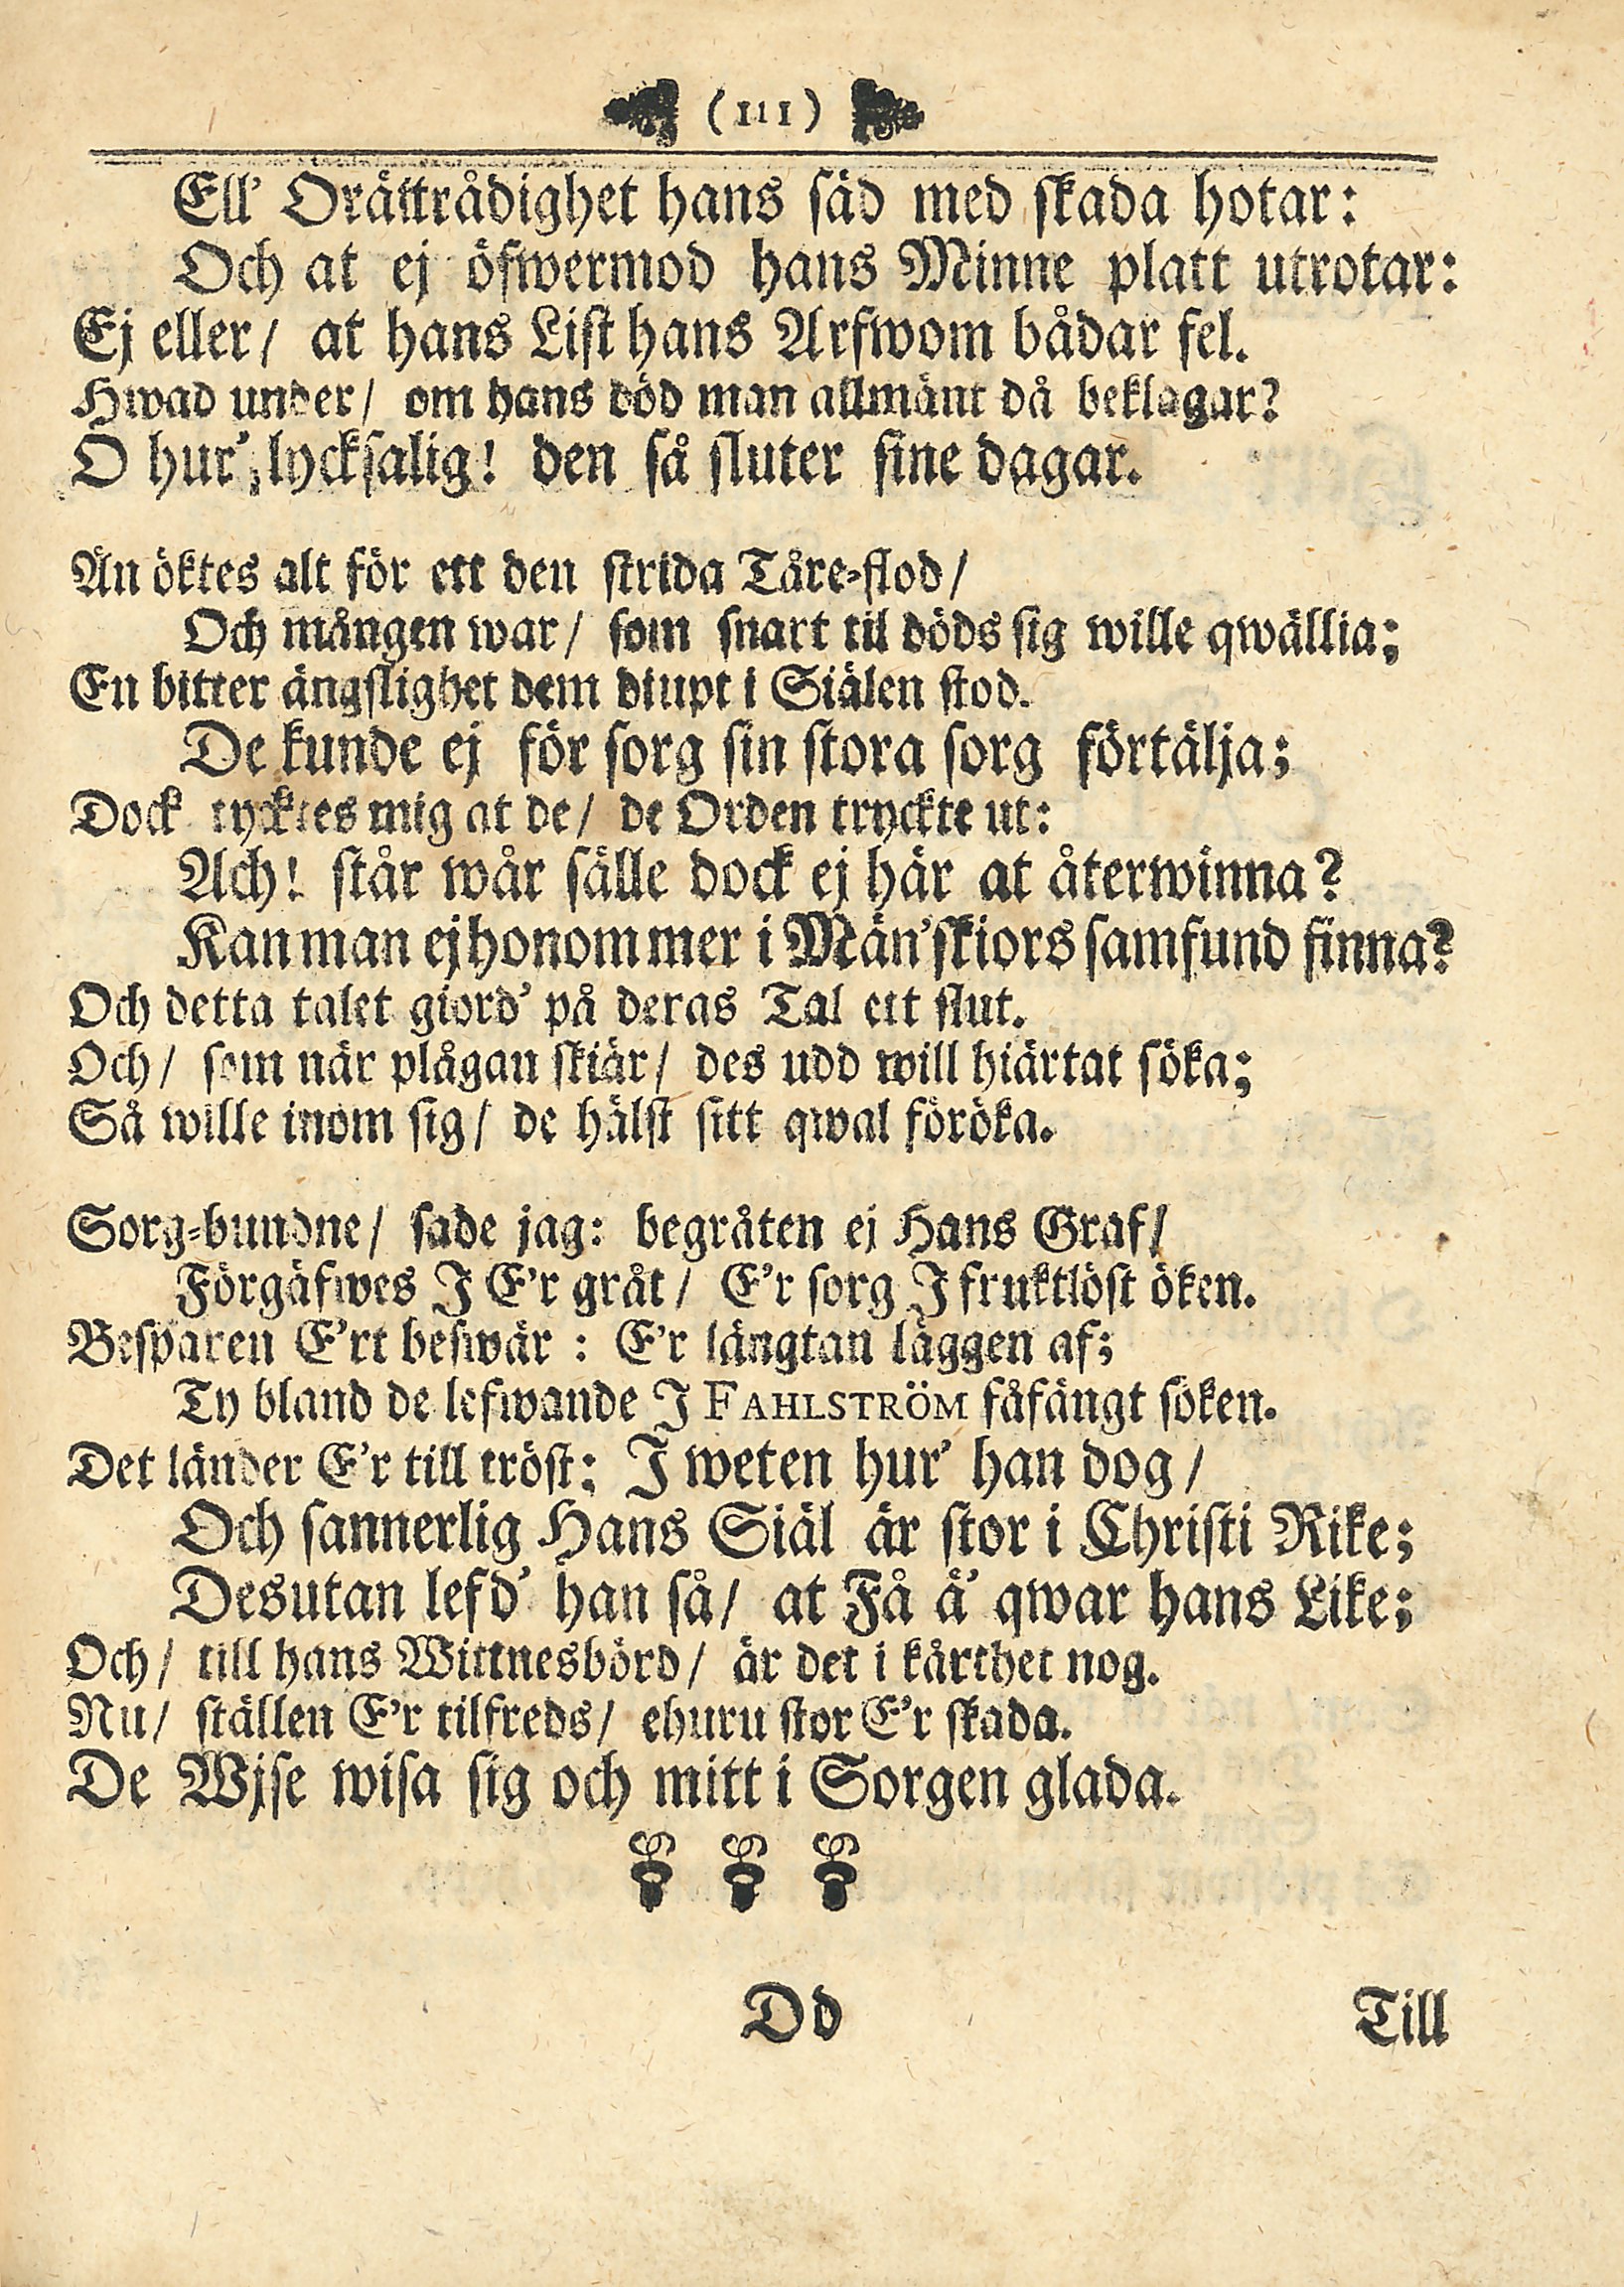 (111)
Ell' Orättrådighet hans säd med skada hotar:
Och at ej öfwermod hans Minne platt utrotar:
Ej eller/ at hans List hans Arfwom bådar fel.
Hwad under/ om hans död man allmänt då beklagar?
O hur' lycksalig! den så sluter sine dagar.
Än öktes alt för ett den strida Tåre-flod/
Och mången war/ som snart til döds sig wille qwällia;
En bitter ängslighet dem diupt i Siälen stod.
De kunde ej för sorg sin stora sorg förtälja;
Dock tycktes mig at de/ de Orden tryckte ut:
Ach! står wår sälle dock ej här at återwinna?
Kan man ej honom mer i Män'skiors samfund finna?
Och detta talet giord' på deras Tal ett slut.
Och/ som när plågan skiär/ des udd will hiärtat söka;
Så wille inom sig/ de hälst sitt qwal föröka.
Sorg-bundne/ sade jag: begråten ej Hans Graf/
Förgäfwes J E'r gråt/ E'r sorg J fruktlöst öken.
Besparen E'rt beswär: E'r längtan läggen af;
Ty bland de lefwande J FAHLSTRÖM fåfängt söken.
Det länder E'r till tröst: J weten hur' han dog/
Och sannerlig Hans Siäl är stor i Christi Rike;
Desutan lefd' han så/ at Få ä' qwar hans Like;
Och/ till hans Wittnesbörd/ är det i kårthet nog.
Nu/ ställen E'r tilfreds/ ehuru stor E'r skada.
De Wjse wisa sig och mitt i Sorgen glada.
Dd
Till